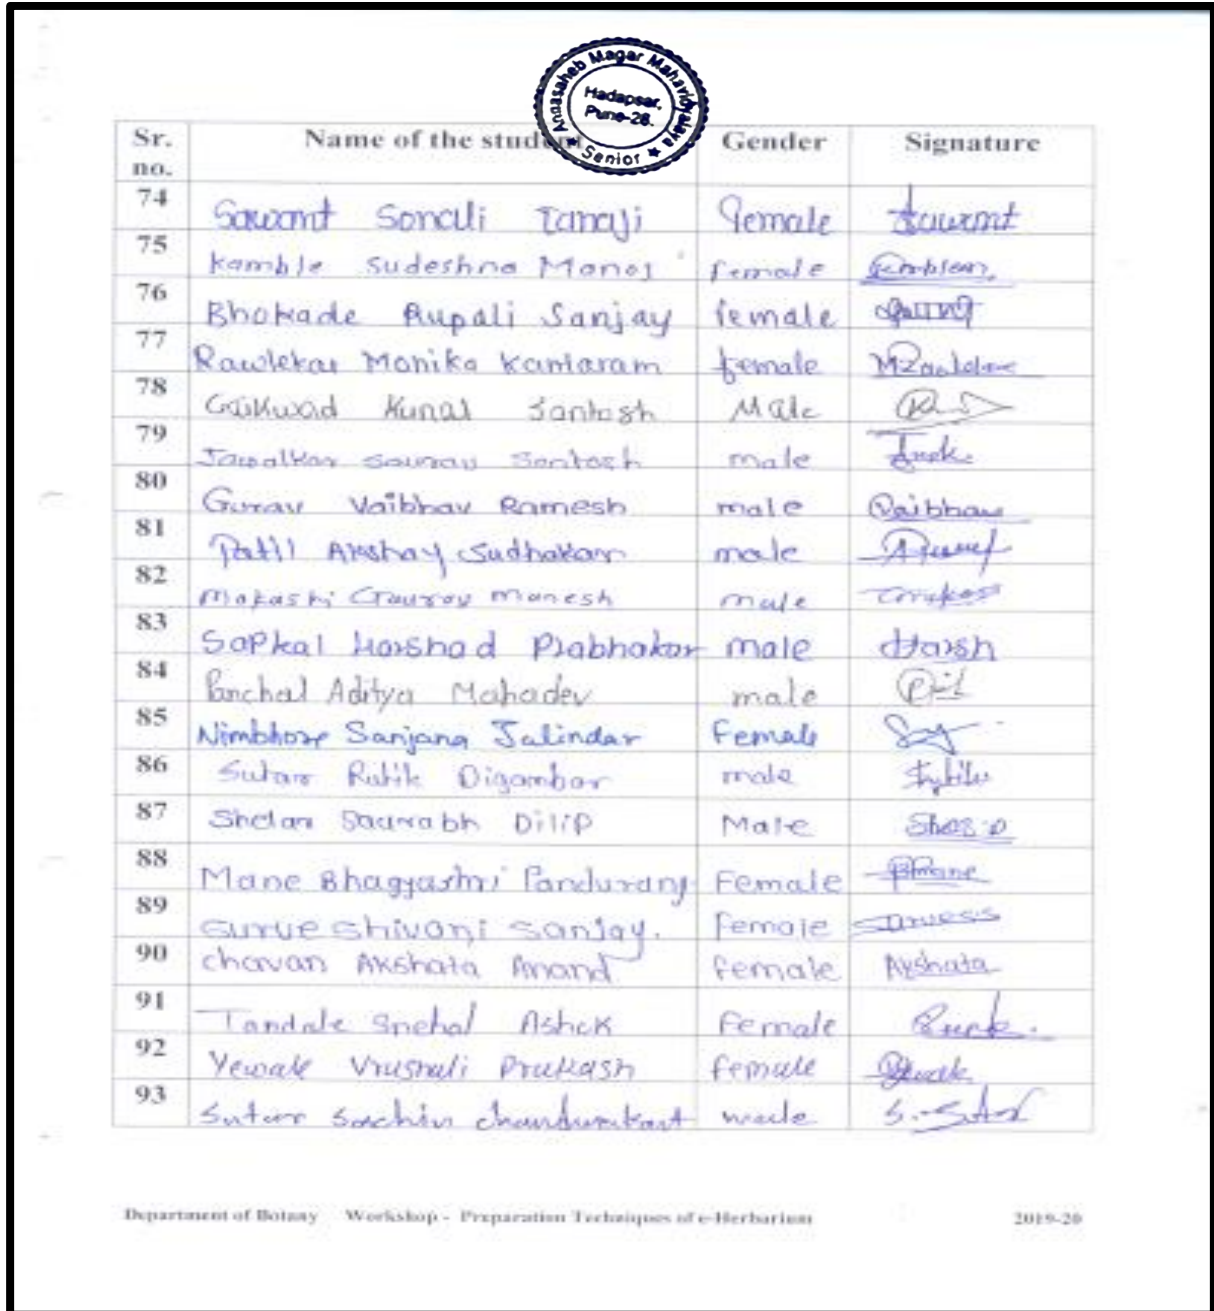 Annasaheb Magar Mahavidyalaya
Hadapsar,
Pune-28.
★ Senior ★
Sr. no. Name of the student Gender Signature
74 Sawant Sonali Tanaji female Sawant
75 Kamble Sudeshna Manoj female
76 Bhokade Rupali Sanjay female
77 Rawlekar Monika Kantaram female
78 Gaikwad Kunal Santosh Male
79 Jawalkar Saurav Santosh male
80 Gurav Vaibhav Ramesh male Vaibhav
81 Patil Akshay Sudhakar male
82 Makashi Gaurav Manesh male
83 Sapkal Harshad Prabhakar male Harsh
84 Panchal Aditya Mahadev male
85 Nimbhore Sanjana Jalindar Female
86 Sutar Rutik Digambar male
87 Shelar Saurabh Dilip Male
88 Mane Bhagyashri Pandurang Female BMane
89 Surve Shivani Sanjay. Female
90 Chavan Akshata Anand female Akshata
91 Tandale Snehal Ashok Female
92 Yewale Vrushali Prakash female
93 Sutar Sachin Chandrakant male S. Sutar
Department of Botany Workshop - Preparation Techniques of e-Herbarium 2019-20